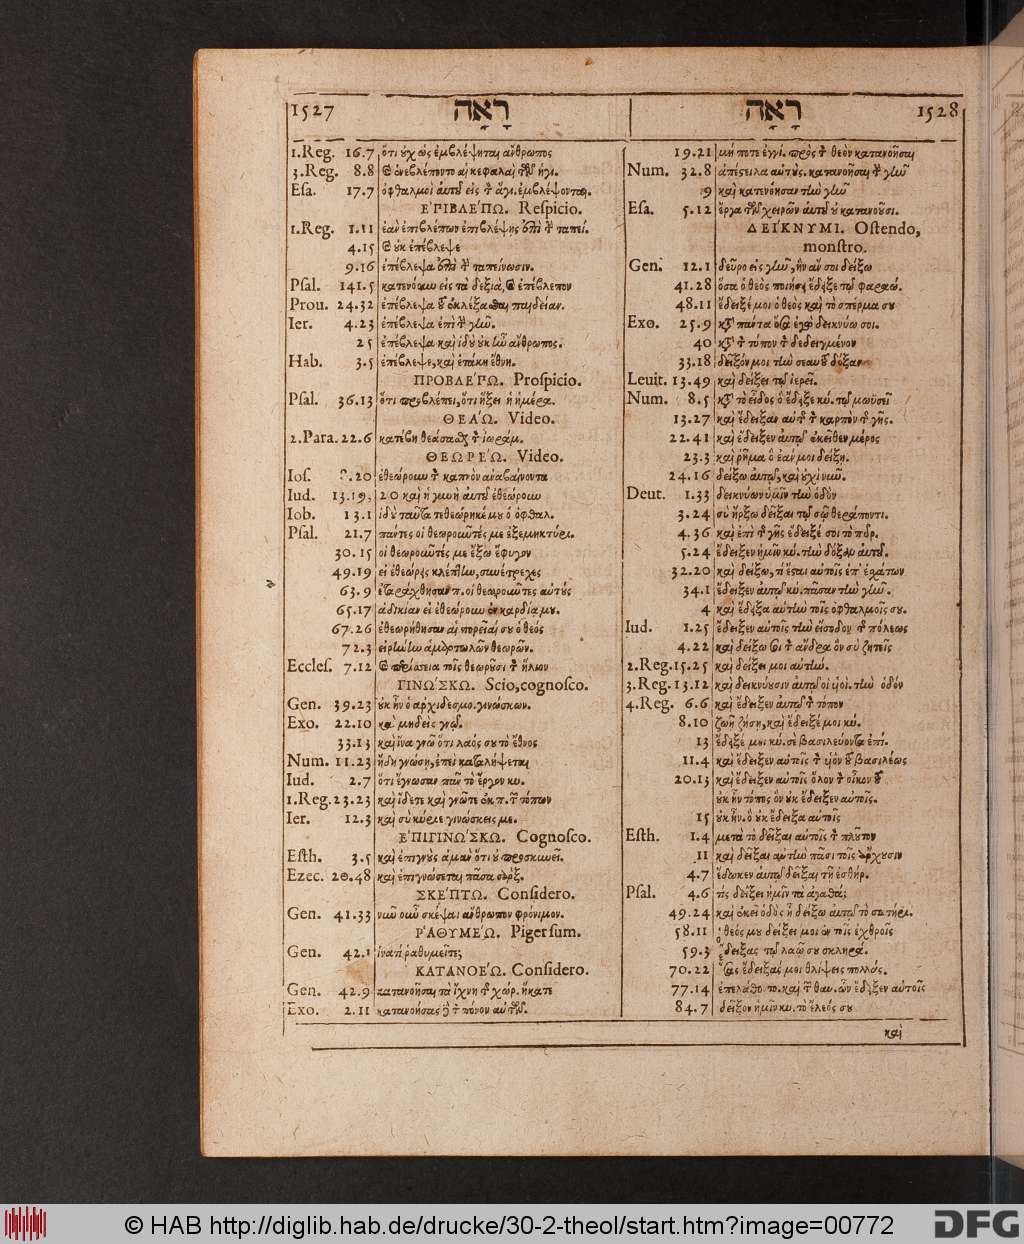 1527 רָאָה
1.Reg. 16.7 ὅτι οὐχ ὡς ἐμβλέψηται ἄνθρωπος
3.Reg. 8.8
Esa. 17.7 ὀφθαλμοὶ αὐτοῦ εἰς τ ἅγι. ἐμβλέψονται.
ἘΠΙΒΛΕΠΩ. Respicio.
1.Reg. 1.11 ἐὰν ἐπιβλέπων ἐπιβλέψῃς ταπεί.
4.15 οὐκ ἐπέβλεψε
9.16 ἐπέβλεψα ἐπὶ τ ταπείνωσιν.
Psal. 141.5 κατενόουν εἰς τὰ δεξιὰ, ἐπέβλεπον
Prou. 24.32 ἐπέβλεψα τοῦ ἐκλέξασθαι παιδείαν.
Ier. 4.23 ἐπέβλεψα ἐπὶ τ γῆν.
25 ἐπέβλεψα καὶ ἰδοὺ οὐκ ἦν ἄνθρωπος.
Hab. 3.5 ἐπέβλεψε, καὶ ἐτάκη ἔθνη.
ΠΡΟΒΛΕΠΩ. Prospicio.
Psal. 36.13 ὅτι προβλέπει, ὅτι ἥξει ἡ ἡμέρα.
ΘΕΑΩ. Video.
2.Para. 22.6 κατέβη θεάσασθαι τ ἰωράμ.
ΘΕΩΡΕΩ. Video.
Ios. 8.20 ἐθεώρουν τ καπνὸν ἀναβαίνοντα
Iud. 13.19, 20 καὶ ἡ γυνὴ αὐτοῦ ἐθεώρουν
Iob. 13.1 ἰδοὺ ταῦτα τεθεώρηκέ μου ὁ ὀφθαλ.
Psal. 21.7 πάντες οἱ θεωροῦντές με ἐξεμυκτήρι.
30.15 οἱ θεωροῦντές με ἔξω ἔφυγον
49.19 εἰ ἐθεώρεις κλέπτην, συνέτρεχες
63.9 ἐταράχθησαν π. οἱ θεωροῦντες αὐτούς
65.17 ἀδικίαν εἰ ἐθεώρουν ἐν καρδίᾳ μου.
67.26 ἐθεωρήθησαν αἱ πορεῖαί σου ὁ θεός
72.3 εἰρήνην ἁμαρτωλῶν θεωρῶν.
Eccles. 7.12 περίσσεια τοῖς θεωροῦσι τ ἥλιον
ΓΙΝΩΣΚΩ. Scio, cognosco.
Gen. 39.23 οὐκ ἦν ὁ ἀρχιδεσμο. γινώσκων.
Exo. 22.10 καὶ μηδεὶς γνῷ.
33.13 καὶ ἵνα γνῶ ὅτι λαός σου τὸ ἔθνος
Num. 11.23 ἤδη γνώσῃ, ἐπεὶ καταλήψεται
Iud. 2.7 ὅτι ἔγνωσαν πᾶν τὸ ἔργον κυ.
1.Reg. 23.23 καὶ ἴδετε καὶ γνῶτε ἐκ π. τόπων
Ier. 12.3 καὶ σὺ κύριε γινώσκεις με.
ἘΠΙΓΙΝΩΣΚΩ. Cognosco.
Esth. 3.5 καὶ ἐπιγνοὺς ἀμὰν ὅτι οὐ προσκυνεῖ.
Ezec. 20.48 καὶ ἐπιγνώσεται πᾶσα σάρξ.
ΣΚΕΠΤΩ. Considero.
Gen. 41.33 νῦν οὖν σκέψαι ἄνθρωπον φρόνιμον.
ῬΑΘΥΜΕΩ. Piger sum.
Gen. 42.1 ἱνατί ῥαθυμεῖτε;
ΚΑΤΑΝΟΕΩ. Considero.
Gen. 42.9 κατανοῆσαι τὰ ἴχνη τ χώρ. ἥκατε
Exo. 2.11 κατανοήσας τ πόνον αὐτῶν.
רָאָה 1528
19.21 μή ποτε ἐγγί. πρὸς τ θεὸν κατανοῆσαι
Num. 32.8 ἀπέστειλα αὐτοὺς. κατανοῆσαι τ γῆν
9 καὶ κατενόησαν τὴν γῆν
Esa. 5.12 ἔργα τῶν χειρῶν αὐτοῦ οὐ κατανοῦσι.
ΔΕΙΚΝΥΜΙ. Ostendo,
monstro.
Gen. 12.1 δεῦρο εἰς γῆν, ἣν ἄν σοι δείξω
41.28 ὅσα ὁ θεὸς ποιήσῃ ἔδειξε τῷ φαραώ.
48.11 ἔδειξέ μοι ὁ θεὸς καὶ τὸ σπέρμα σου
Exo. 25.9 κατὰ πάντα ὅσα ἐγὼ δεικνύω σοι.
40 κατὰ τ τύπον τ δεδειγμένον
33.18 δεῖξόν μοι τὴν σεαυτοῦ δόξαν
Leuit. 13.49 καὶ δείξει τῷ ἱερεῖ.
Num. 8.5 κατὰ τὸ εἶδος ὃ ἔδειξε κύ. τῷ μωϋσεῖ
13.27 καὶ ἔδειξαν αὐ τ καρπὸν τ γῆς.
22.41 καὶ ἔδειξεν αὐτῷ ἐκεῖθεν μέρος
23.3 καὶ ῥῆμα ὃ ἐάν μοι δείξῃ.
24.16 δείξω αὐτῷ, καὶ οὐχὶ νῦν.
Deut. 1.33 δεικνύων ὑμῖν τὴν ὁδὸν
3.24 σὺ ἤρξω δεῖξαι τῷ σῷ θεράποντι.
4.36 καὶ ἐπὶ τ γῆς ἔδειξέ σοι τὸ πῦρ.
5.24 ἔδειξεν ἡμῖν κύ. τὴν δόξαν αὐτοῦ.
32.20 καὶ δείξω, τί ἔσται αὐτοῖς ἐπ' ἐσχάτων
34.1 ἔδειξεν αὐτῷ κύ. πᾶσαν τὴν γῆν.
4 καὶ ἔδειξα αὐτὴν τοῖς ὀφθαλμοῖς σου.
Iud. 1.25 ἔδειξεν αὐτοῖς τὴν εἴσοδον τ πόλεως
4.22 καὶ δείξω σοι τ ἄνδρα ὃν σὺ ζητεῖς
2.Reg. 15.25 καὶ δείξει μοι αὐτήν.
3.Reg. 13.12 καὶ δεικνύουσιν αὐτῷ οἱ υἱοὶ. τὴν ὁδόν
4.Reg. 6.6 καὶ ἔδειξεν αὐτῷ τ τόπον
8.10 ζωῇ ζήσῃ, καὶ ἔδειξέ μοι κύ.
13 ἔδειξέ μοι κύ. σὲ βασιλεύοντα ἐπί.
11.4 καὶ ἔδειξεν αὐτοῖς τ υἱὸν τοῦ βασιλέως
20.13 καὶ ἔδειξεν αὐτοῖς ὅλον τ οἶκον τοῦ
οὐκ ἦν τόπος ὃν οὐκ ἔδειξεν αὐτοῖς.
15 οὐκ ἦν. ὃ οὐκ ἔδειξα αὐτοῖς
Esth. 1.4 μετὰ τὸ δεῖξαι αὐτοῖς τ πλοῦτον
11 καὶ δεῖξαι αὐτὴν πᾶσι τοῖς ἄρχουσιν
4.7 ἔδωκεν αὐτῷ δεῖξαι τῇ ἐσθήρ.
Psal. 4.6 τίς δείξει ἡμῖν τὰ ἀγαθά;
49.24 καὶ ἐκεῖ ὁδὸς ᾗ δείξω αὐτῷ τὸ σωτήρι.
58.11 ὁ θεός μου δείξει μοι ἐν τοῖς ἐχθροῖς
59.3 ἔδειξας τῷ λαῷ σου σκληρά.
70.22 ὅσας ἔδειξάς μοι θλίψεις πολλάς.
77.14 ἐπελάθοντο. καὶ τ θαυ. ὧν ἔδειξεν αὐτοῖς
84.7 δεῖξον ἡμῖν κυ. τὸ ἔλεός σου
καὶ
© HAB http://diglib.hab.de/drucke/30-2-theol/start.htm?image=00772
DFG